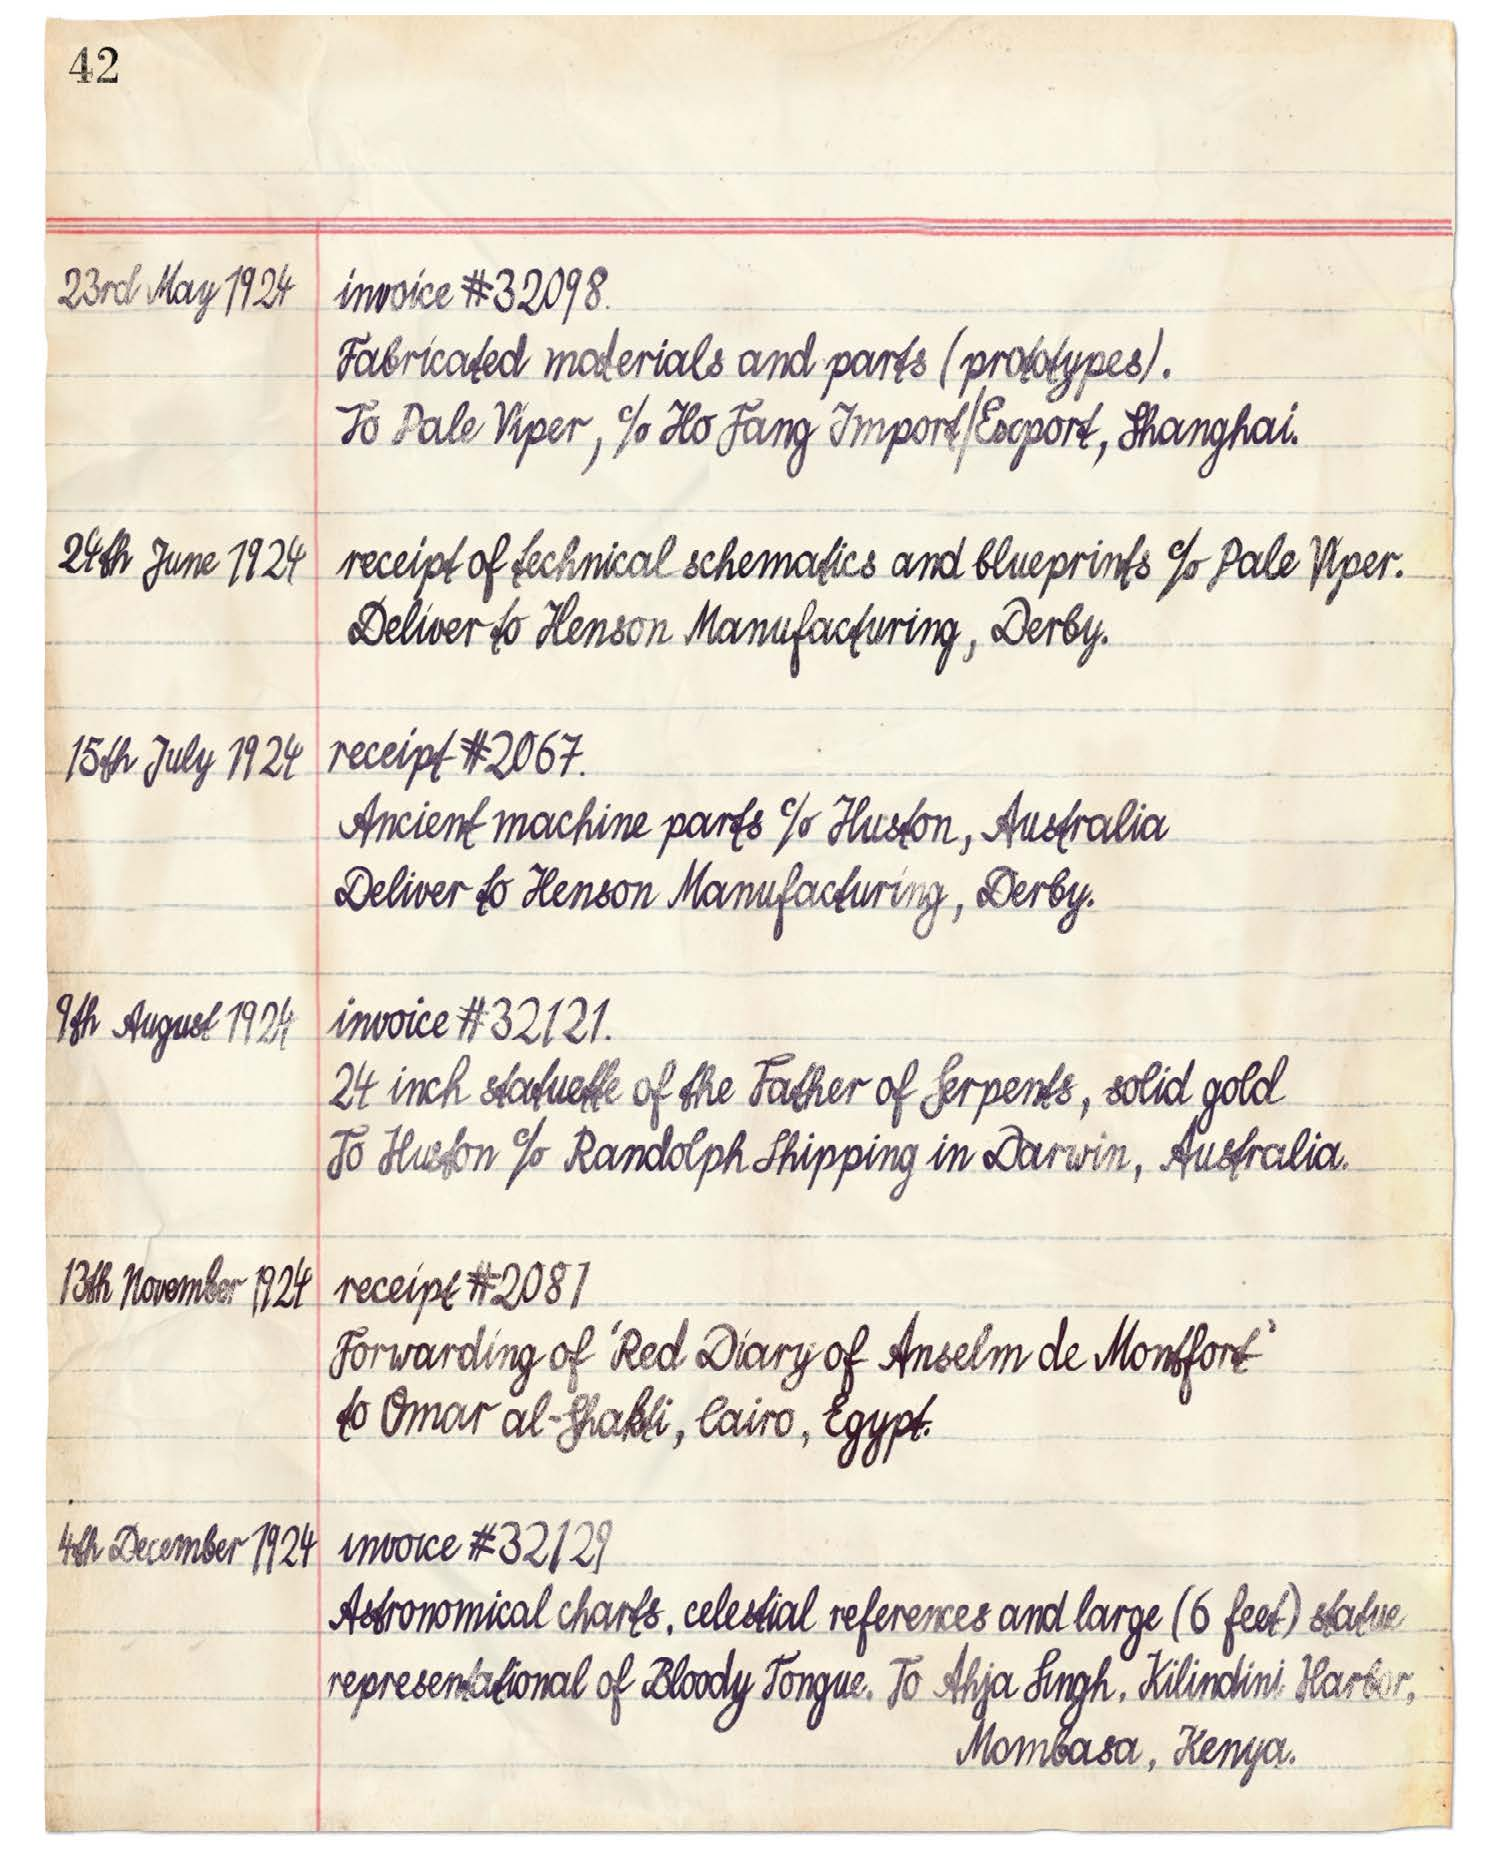 42
23rd May 1924 invoice #32098.
Fabricated materials and parts (prototypes).
To Pale Viper, c/o Ho Fang Import/Export, Shanghai.
24th June 1924 receipt of technical schematics and blueprints c/o Pale Viper.
Deliver to Henson Manufacturing, Derby.
15th July 1924 receipt #2067.
Ancient machine parts c/o Huston, Australia
Deliver to Henson Manufacturing, Derby.
9th August 1924 invoice #32121.
24 inch statuette of the Father of Serpents, solid gold
To Huston c/o Randolph Shipping in Darwin, Australia.
13th November 1924 receipt #2081
Forwarding of 'Red Diary of Anselm de Montfort'
to Omar al-Shakti, Cairo, Egypt.
4th December 1924 invoice #32129
Astronomical charts, celestial references and large (6 feet) statue
representational of Bloody Tongue. To Ahja Singh, Kilindini Harbor,
Mombasa, Kenya.